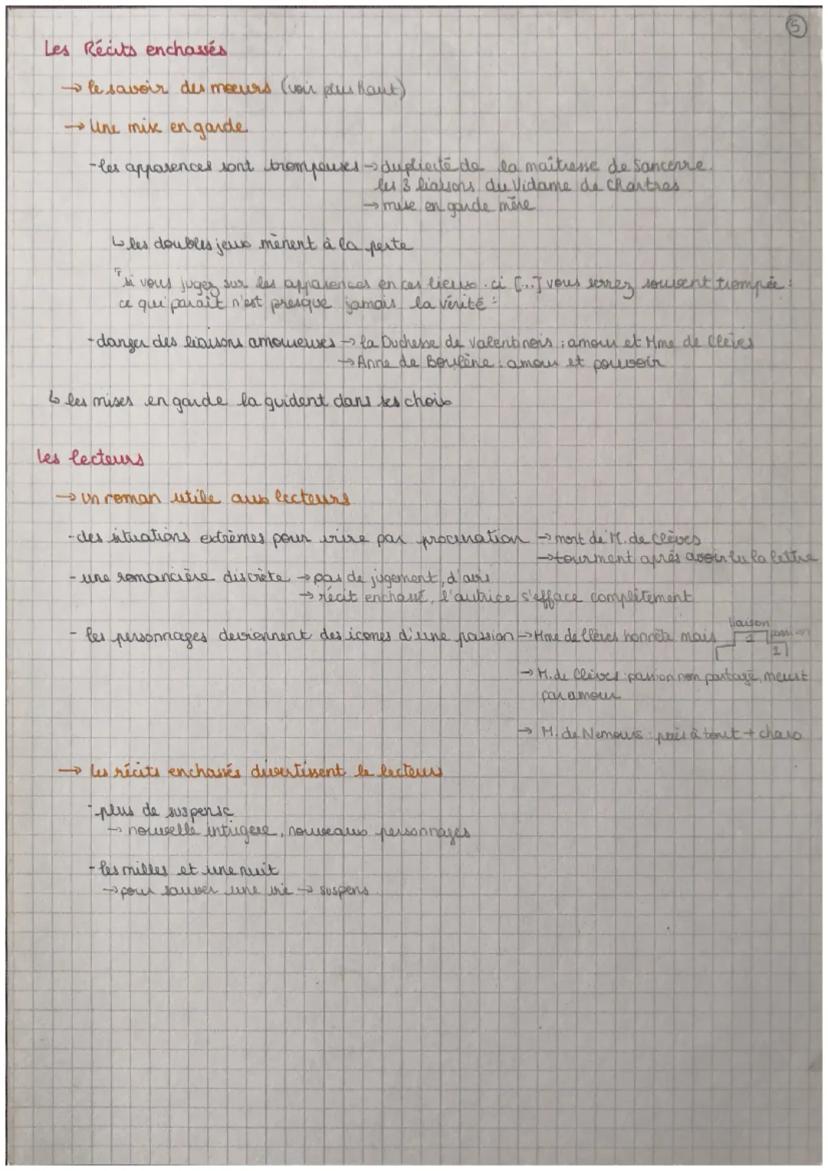 5
Les Récits enchassés
→ le savoir des mœurs (voir plus haut)
→ Une mise en garde
- les apparences sont trompeuses → duplicité de la maîtresse de Sancerre.
les 3 liaisons du Vidame de Chartres
→ mise en garde mère
↳ les doubles jeux mènent à la perte
"si vous jugez sur les apparences en ces lieux-ci [...] vous serrez souvent trompée :
ce qui paraît n'est presque jamais la vérité"
- danger des liaisons amoureuses → la Duchesse de Valentinois : amour et Mme de Clèves
→ Anne de Boulène : amour et pouvoir
↳ les mises en garde la guident dans ses choix
Les lecteurs
→ un roman utile aux lecteurs
- des situations extrêmes pour vivre par procuration → mort de M. de Clèves
→ tourment après avoir lu la lettre
- une romancière discrète → pas de jugement, d'avis
→ récit enchassé, l'autrice s'efface complètement
liaison
- les personnages deviennent des icones d'une passion → Mme de Clèves honnête mais 2 passion
1
→ M. de Clèves : passion non partagé, meurt
par amour
→ M. de Nemours : prêt à tout +
→ les récits enchassés divertissent le lecteurs
- plus de suspense
→ nouvelle intrigue, nouveaux personnages
- les milles et une nuit
→ pour sauver une vie → suspens